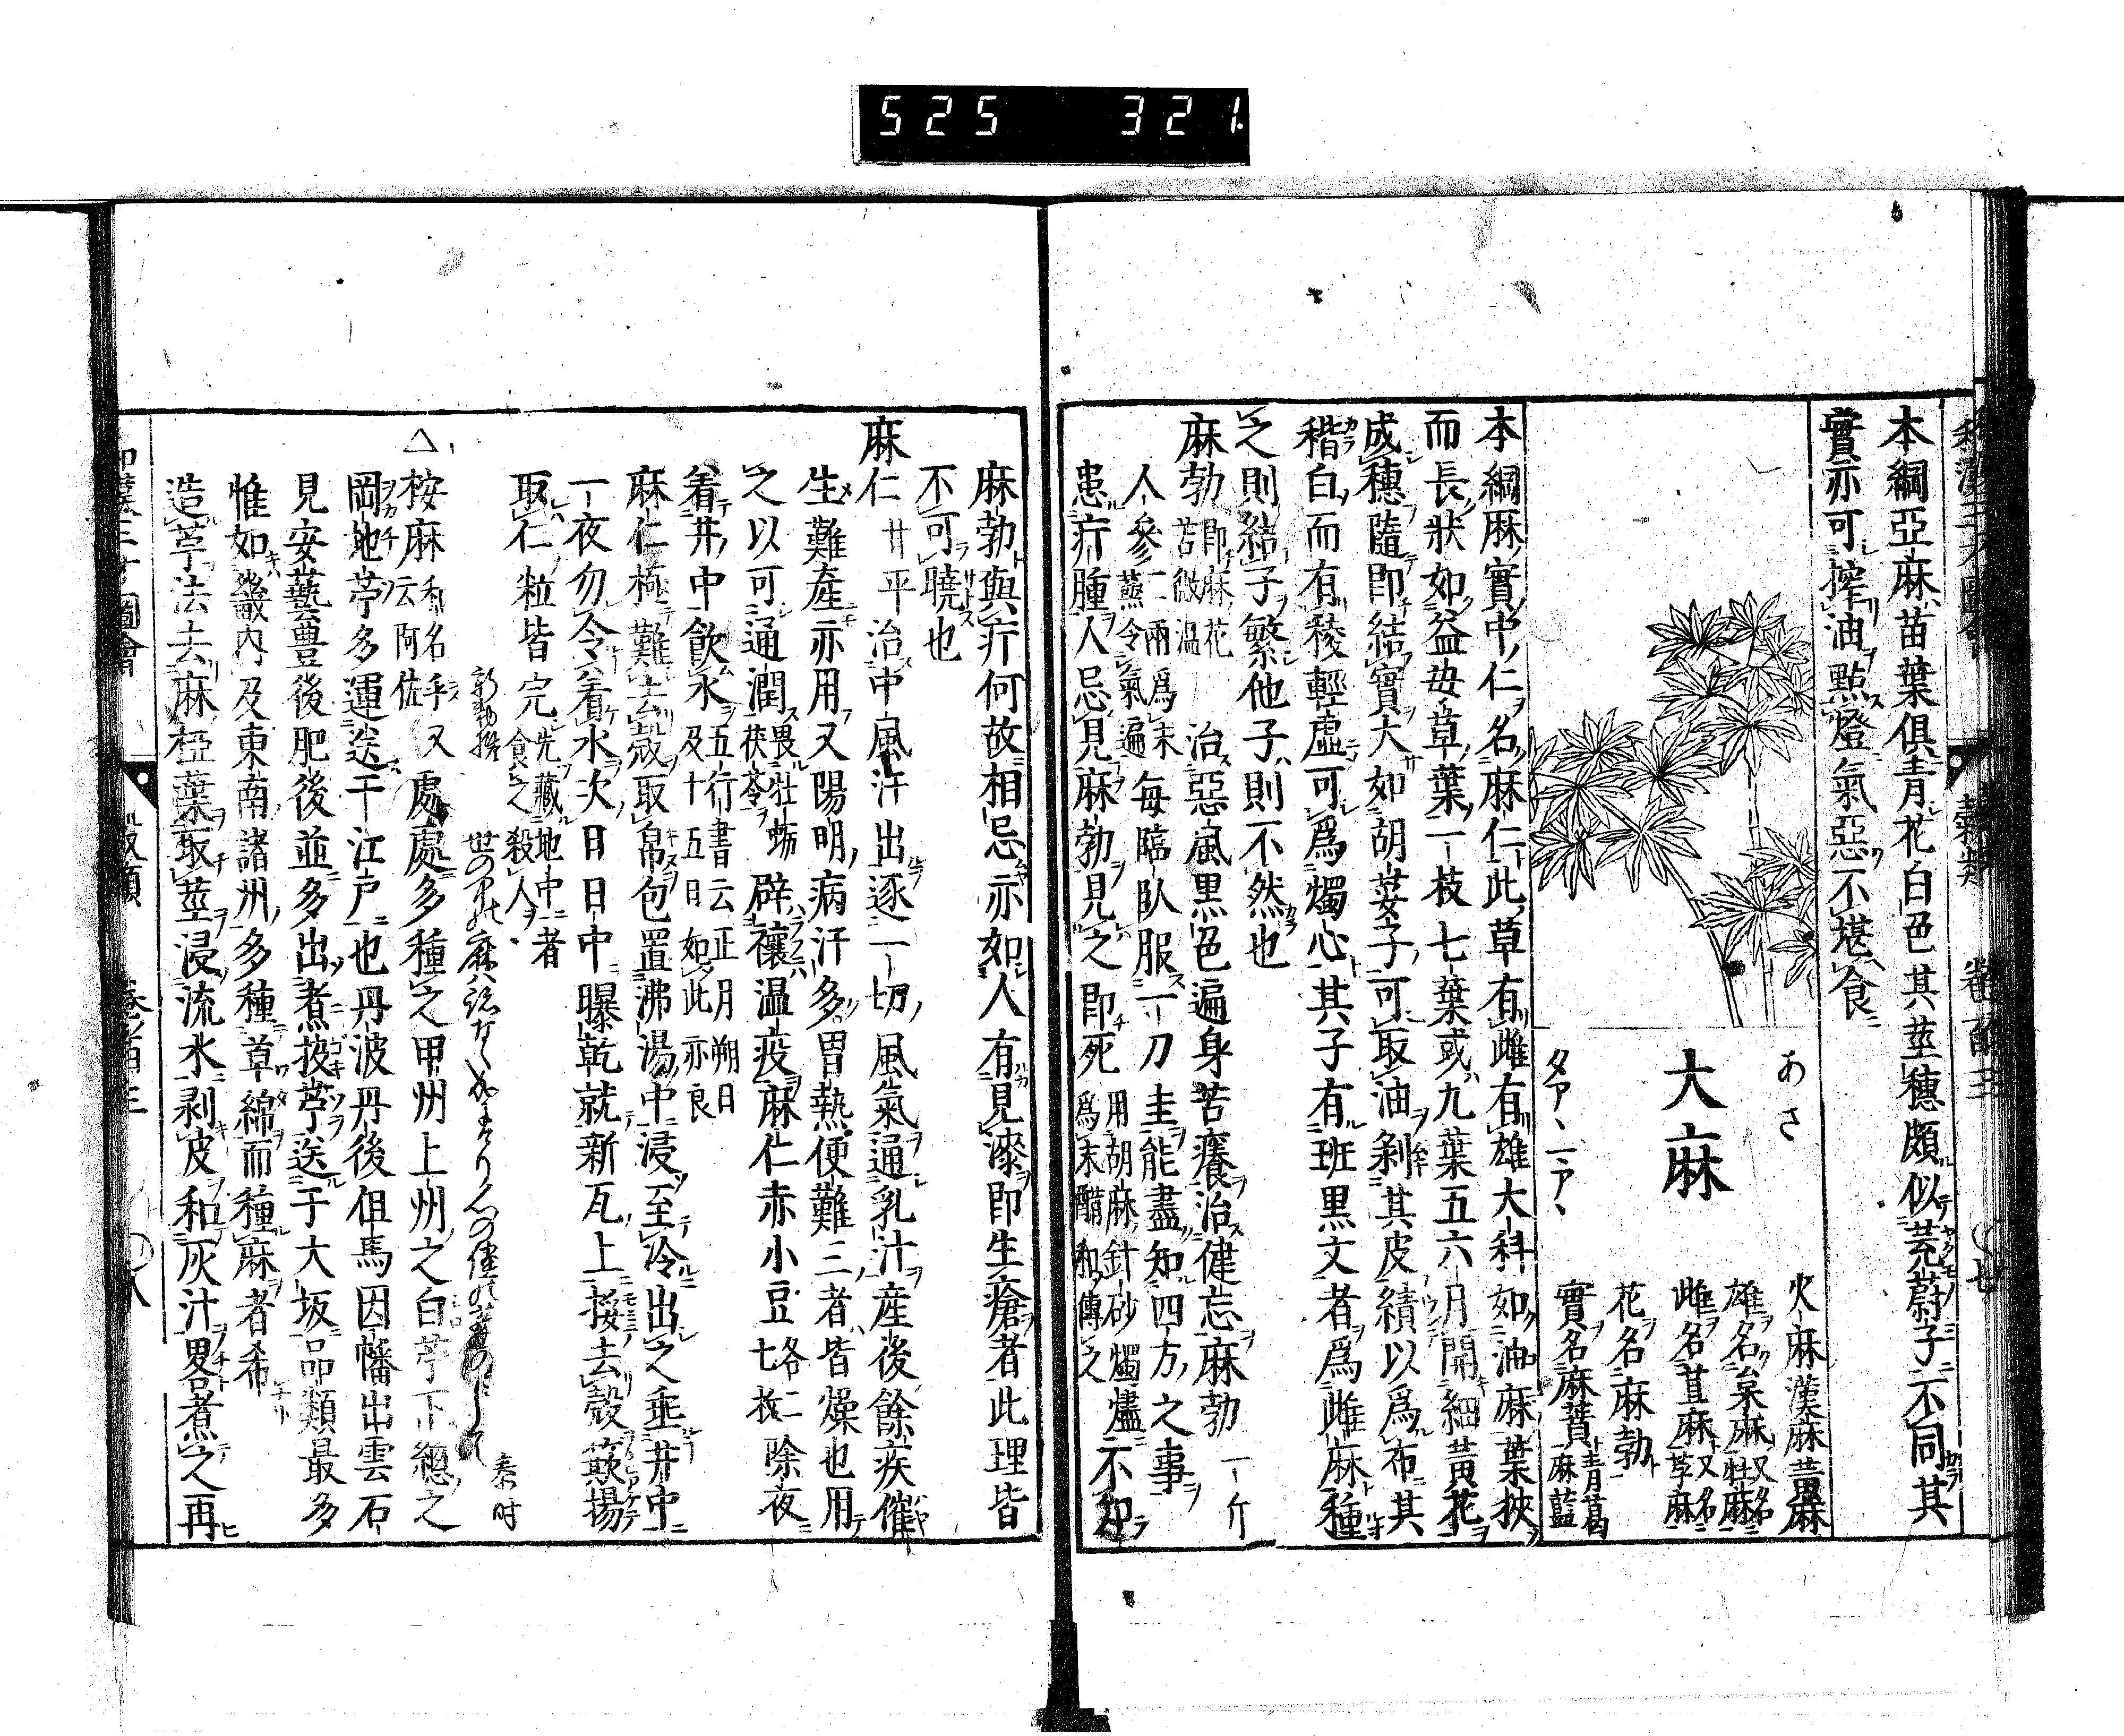 525 321
本綱亞麻苗葉俱青花白色其莖穗頗似茺蔚子不同其
實亦可搾油點燈氣惡不堪食
あさ
大麻
タアヽ マアヽ
火麻 漢麻 黃麻
雄名枲麻又名牡麻
雌名苴麻又名荸麻
花名麻勃
實名麻蕡 青葛 麻藍
本綱麻實中仁名麻仁此草有雌有雄大科如油麻葉狹
而長狀如益母草葉一枝七葉或九葉五六月開細黃花
成穗隨即結實大如胡荽子可取油剝其皮績以爲布其
稭白而有稜輕虛可爲燭心其子有斑黑文者爲雌麻種
之則結子繁他子則不然也
麻勃 即麻花 苦微溫 治惡風黑色遍身苦癢治健忘麻勃一斤
人參二兩爲末蒸令氣遍每臨臥服一刀圭能盡知四方之事
患疔腫人忌見麻勃見之即死 用胡麻針砂燭燼爲末醋和傳之 不知
麻勃與疔何故相忌亦如人有見漆即生瘡者此理皆
不可曉也
麻仁 甘平 治中風汗出逐一切風氣通乳汁產後餘疾催
生難產亦用又陽明病汗多胃熱便難三者皆燥也用
之以可通潤 畏牡蠣茯苓 辟禳溫疫麻仁赤小豆各二七枚除夜
着井中飮水 五行書云正月朔日及十五日如此亦良
麻仁極難去殼取帛包置沸湯中浸至冷出之垂井中
一夜勿令着水次日日中曝乾就新瓦上挼去殼簸揚
取仁粒皆完 先藏地中者食之殺人
新勅撰
秦時
△按麻 和名乎又云阿佐 處處多種之甲州上州之白苧下總之
岡地苧多運送于江戸也丹波丹後但馬因幡出雲石
見安藝豊後肥後並多出煮扱苧送于大坂品類最多
惟如畿內及東南諸州多種草綿而種麻者希
造苧法去麻椏葉取莖浸流水剥皮和灰汁畧煮之再